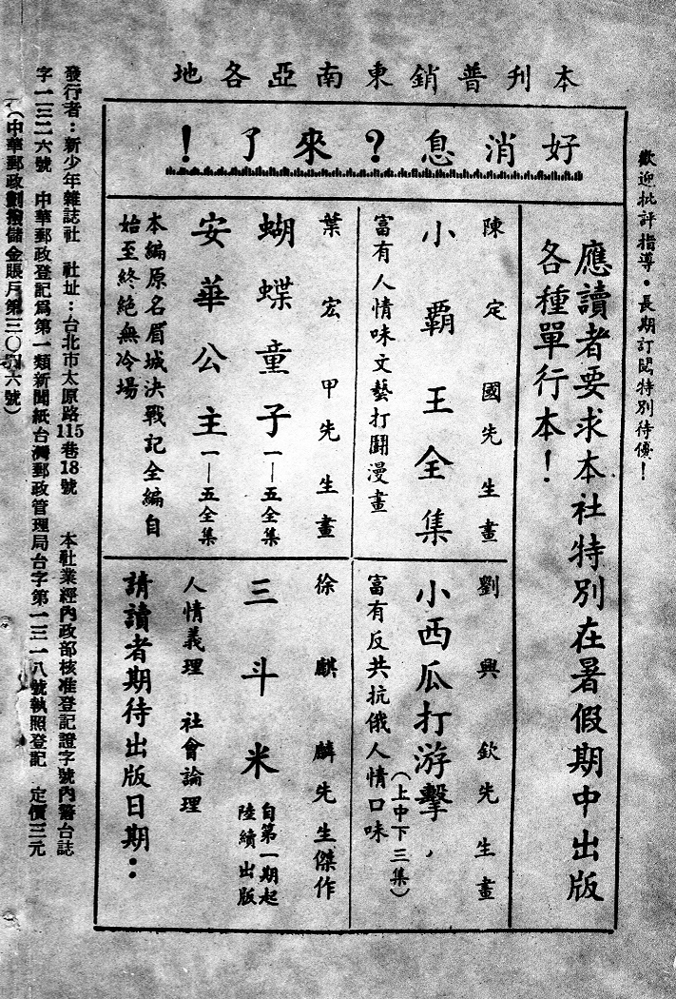 本刊普銷東南亞各地
歡迎批評指導・長期訂閱特別待優！
好消息？來了！
應讀者要求本社特別在暑假期中出版
各種單行本！
陳定國先生畫
小霸王全集
富有人情味文藝打鬪漫畫
劉興欽先生畫
小西瓜打游擊，
（上中下三集）
富有反共抗俄人情口味
葉宏甲先生畫
蝴蝶童子一—五全集
安華公主一—五全集
本編原名眉城決戰記全編自
始至終絶無冷塲
徐麒麟先生傑作
三斗米
自第一期起
陸續出版
人情義理　社會論理
請讀者期待出版日期：
發行者：新少年雜誌社　社址：台北市太原路115巷18號　本社業經內政部核准登記證字號內警台誌
字一三二六號　中華郵政登記爲第一類新聞紙台灣郵政管理局台字第一三一八號執照登記　定價三元
（中華郵政劃撥儲金賬戶第三〇六號）